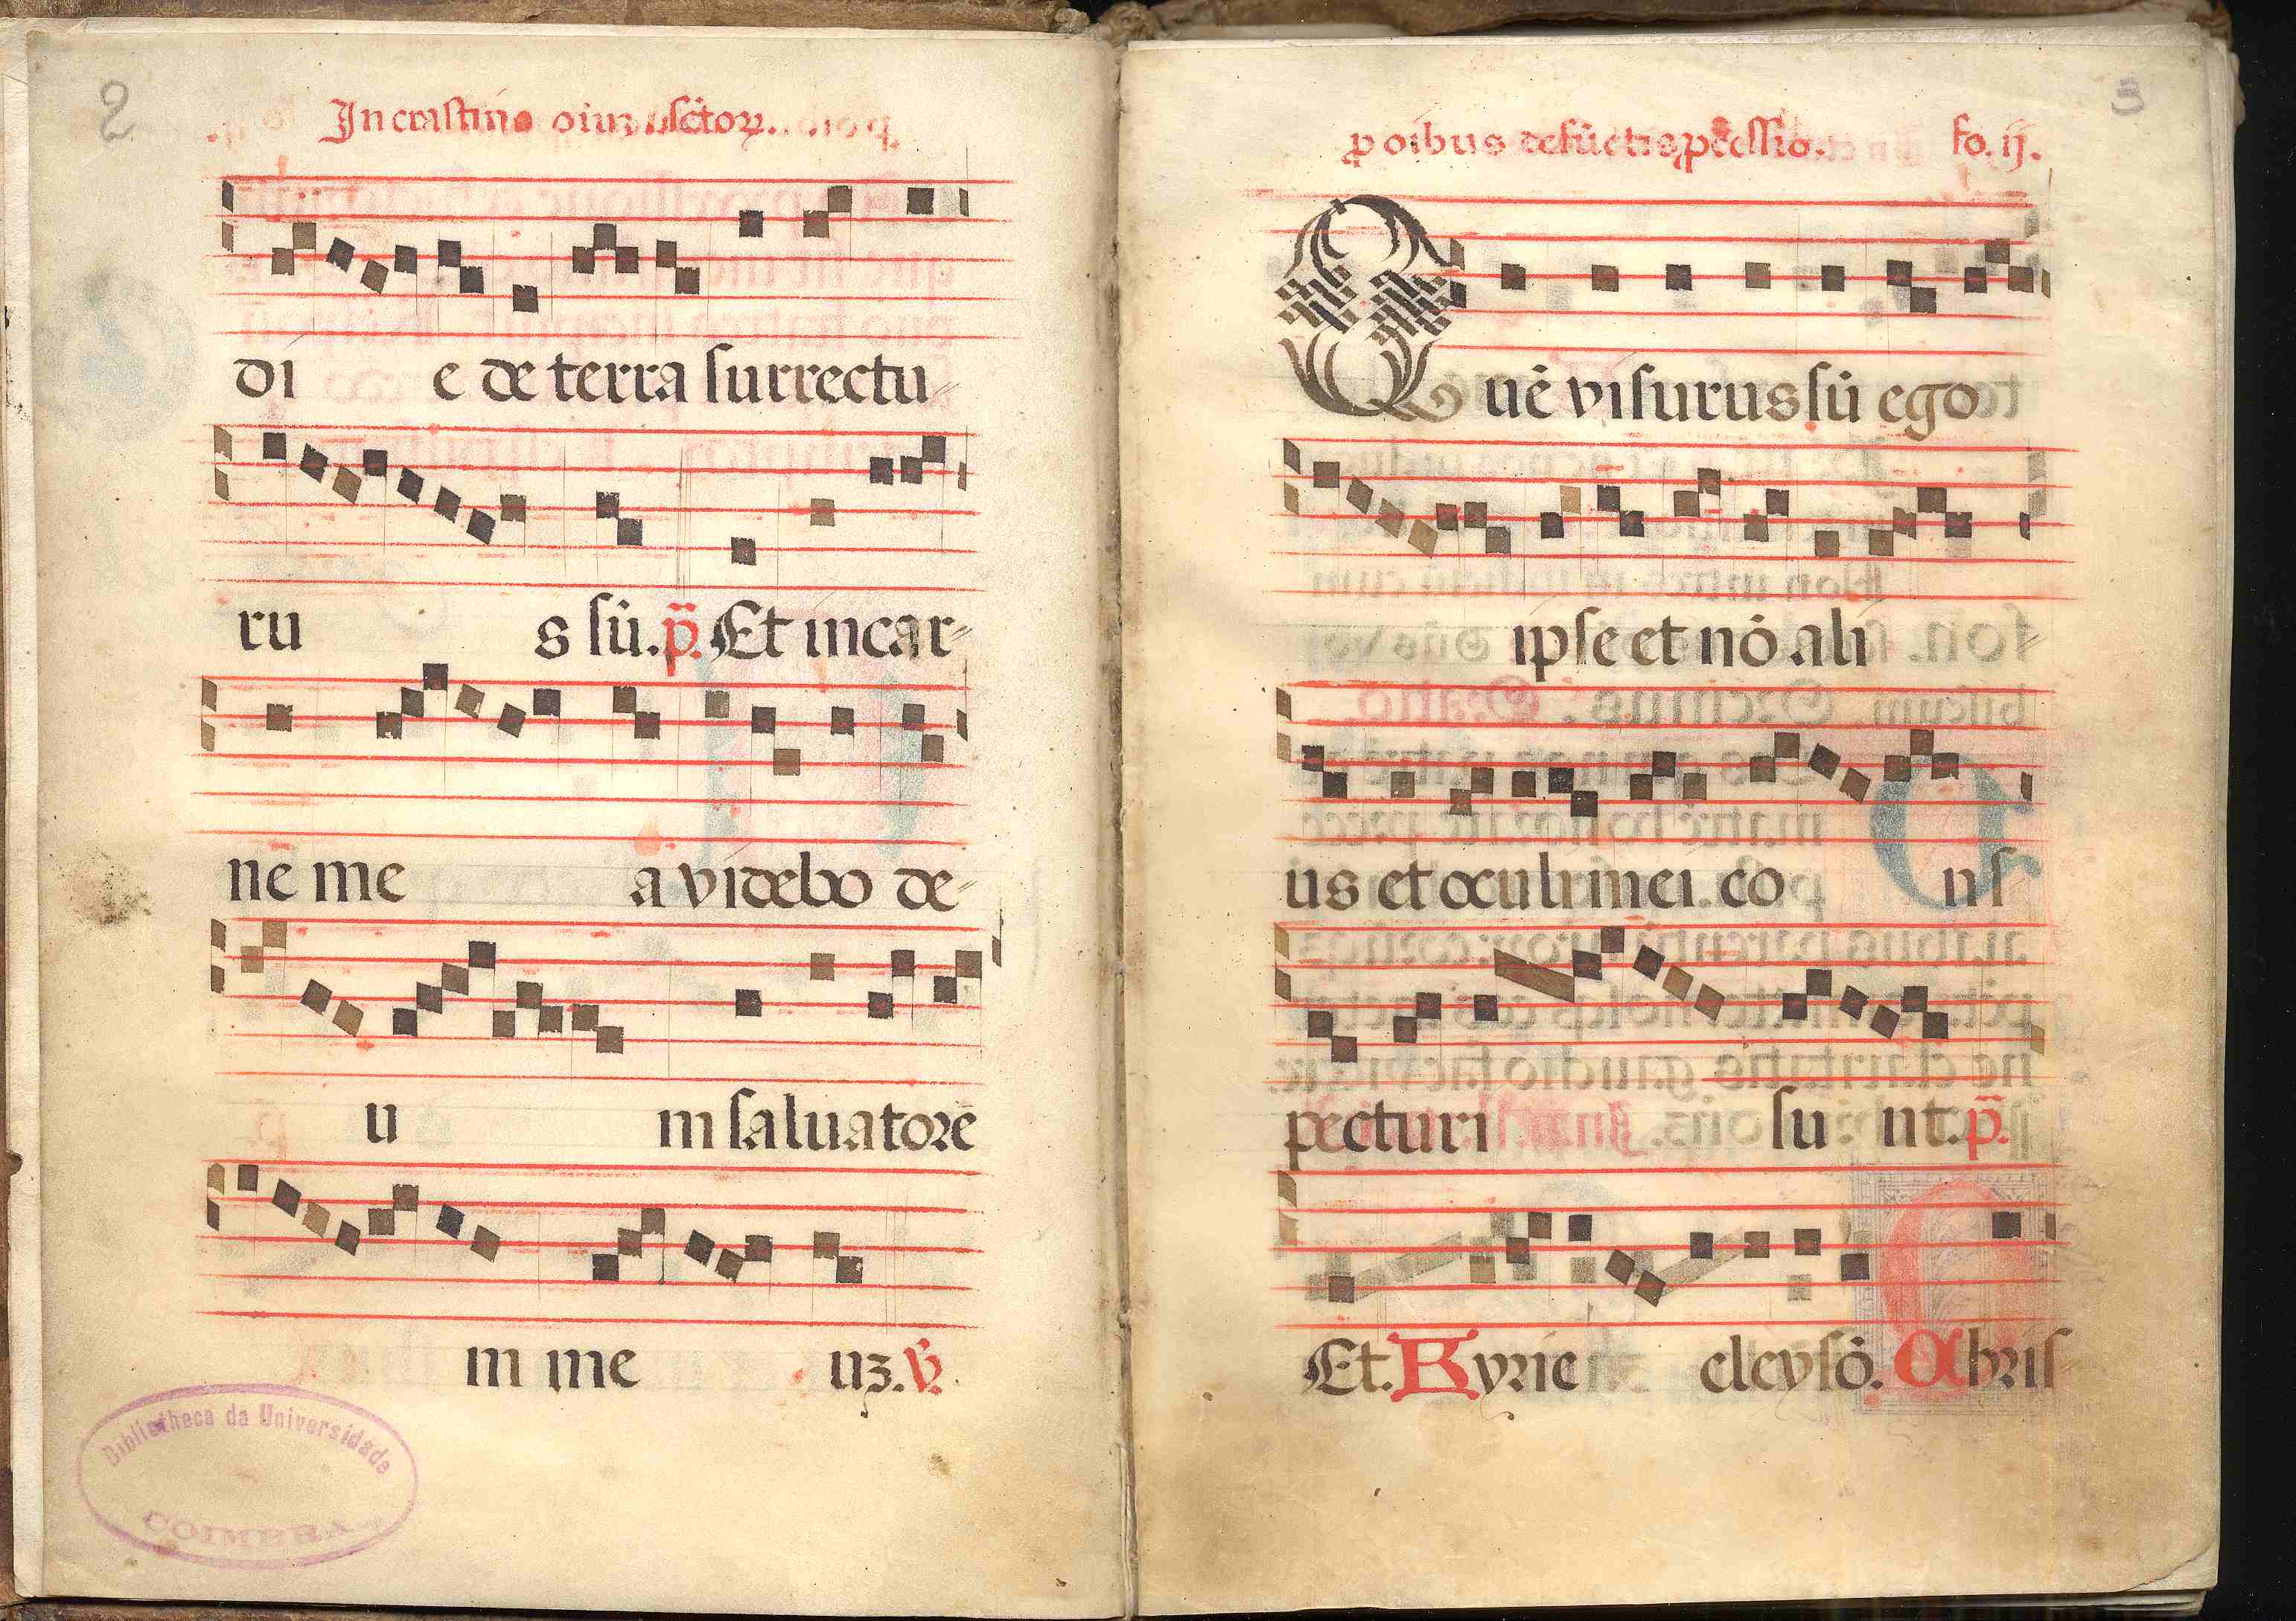 2
In crastino oium sctoꝝ.
di e de terra surrectu
ru s sū. p̄. Et in car
nē me a videbo de
u m saluatorē
m me uꝫ. ℣.
Bibliotheca da Universidade
COIMBRA
3
ꝓ oibus defūctis ꝓcessio. fo. ij.
Quē visurus sū ego
ipse et nō ali
us et oculi mei co ns
pecturi su nt. p̄.
Et. Kyrie eleysō. Chris